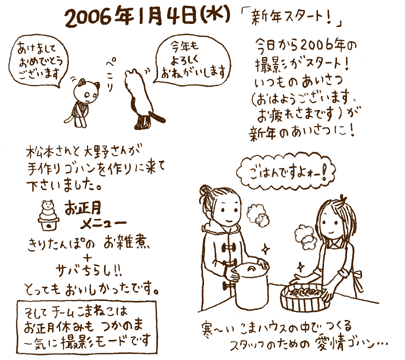 2006年1月4日(水)「新年スタート!」
あけまして
おめでとう
ございます
ぺこり
今年も
よろしく
おねがいします
今日から2006年の
撮影がスタート!
いつものあいさつ
(おはようございます、
お疲れさまです)が
新年のあいさつに!
松本さんと大野さんが
手作りゴハンを作りに来て
下さいました。
お正月
メニュー
きりたんぽの お雑煮、
+
サバちらし!!
とってもおいしかったです。
そしてチームこまねこは
お正月休みも つかのま
一気に撮影モードです
ごはんですよぉー!
寒〜い こまハウスの中で つくる
スタッフのための 愛情ゴハン…